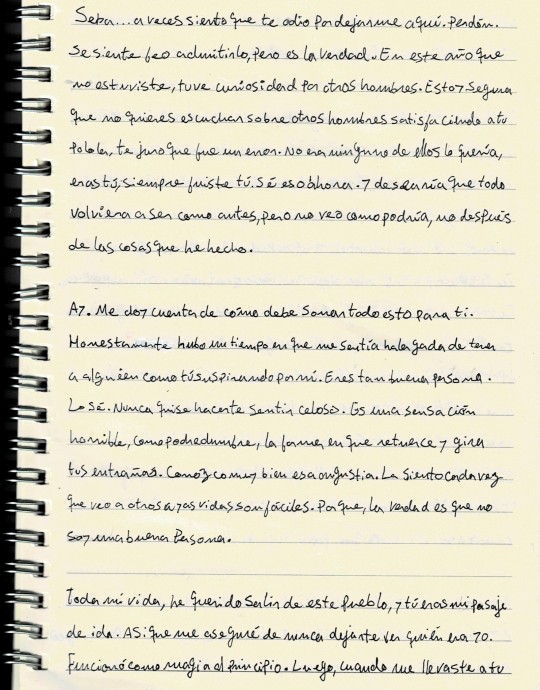 Seba... a veces siento que te odio por dejarme aquí. Perdón.
Se siente feo admitirlo, pero es la verdad. En este año que
no estuviste, tuve curiosidad por otros hombres. Estoy segura
que no quieres escuchar sobre otros hombres satisfaciendo a tu
polola, te juro que fue un error. No era ninguno de ellos lo quería,
eras tú, siempre fuiste tú. Sé eso ahora. Y desearía que todo
volviera a ser como antes, pero no veo como podría, no después
de las cosas que he hecho.
Ay. Me doy cuenta de cómo debe sonar todo esto para ti.
Honestamente hubo un tiempo en que me sentía halagada de tener
a alguien como tú suspirando por mí. Eres tan buena persona.
Lo sé. Nunca quise hacerte sentir celoso. Es una sensación
horrible, como podredumbre, la forma en que retuerce y gira
tus entrañas. Conozco muy bien esa angustia. La siento cada vez
que veo a otros cuyas vidas son fáciles. Porque, la verdad es que no
soy una buena persona.
Toda mi vida, he querido salir de este pueblo, y tú eras mi pasaje
de ida. Asi que me aseguré de nunca dejarte ver quién era yo.
Funcionó como magia al principio. Luego, cuando me llevaste a tu